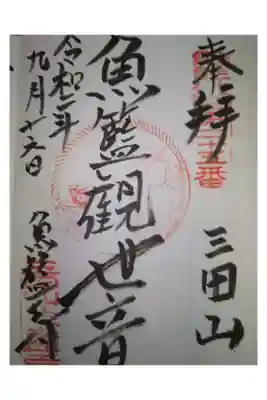 奉拝 三田山
十五番
魚籃觀世音
令和二年
九月十六日
魚籃寺